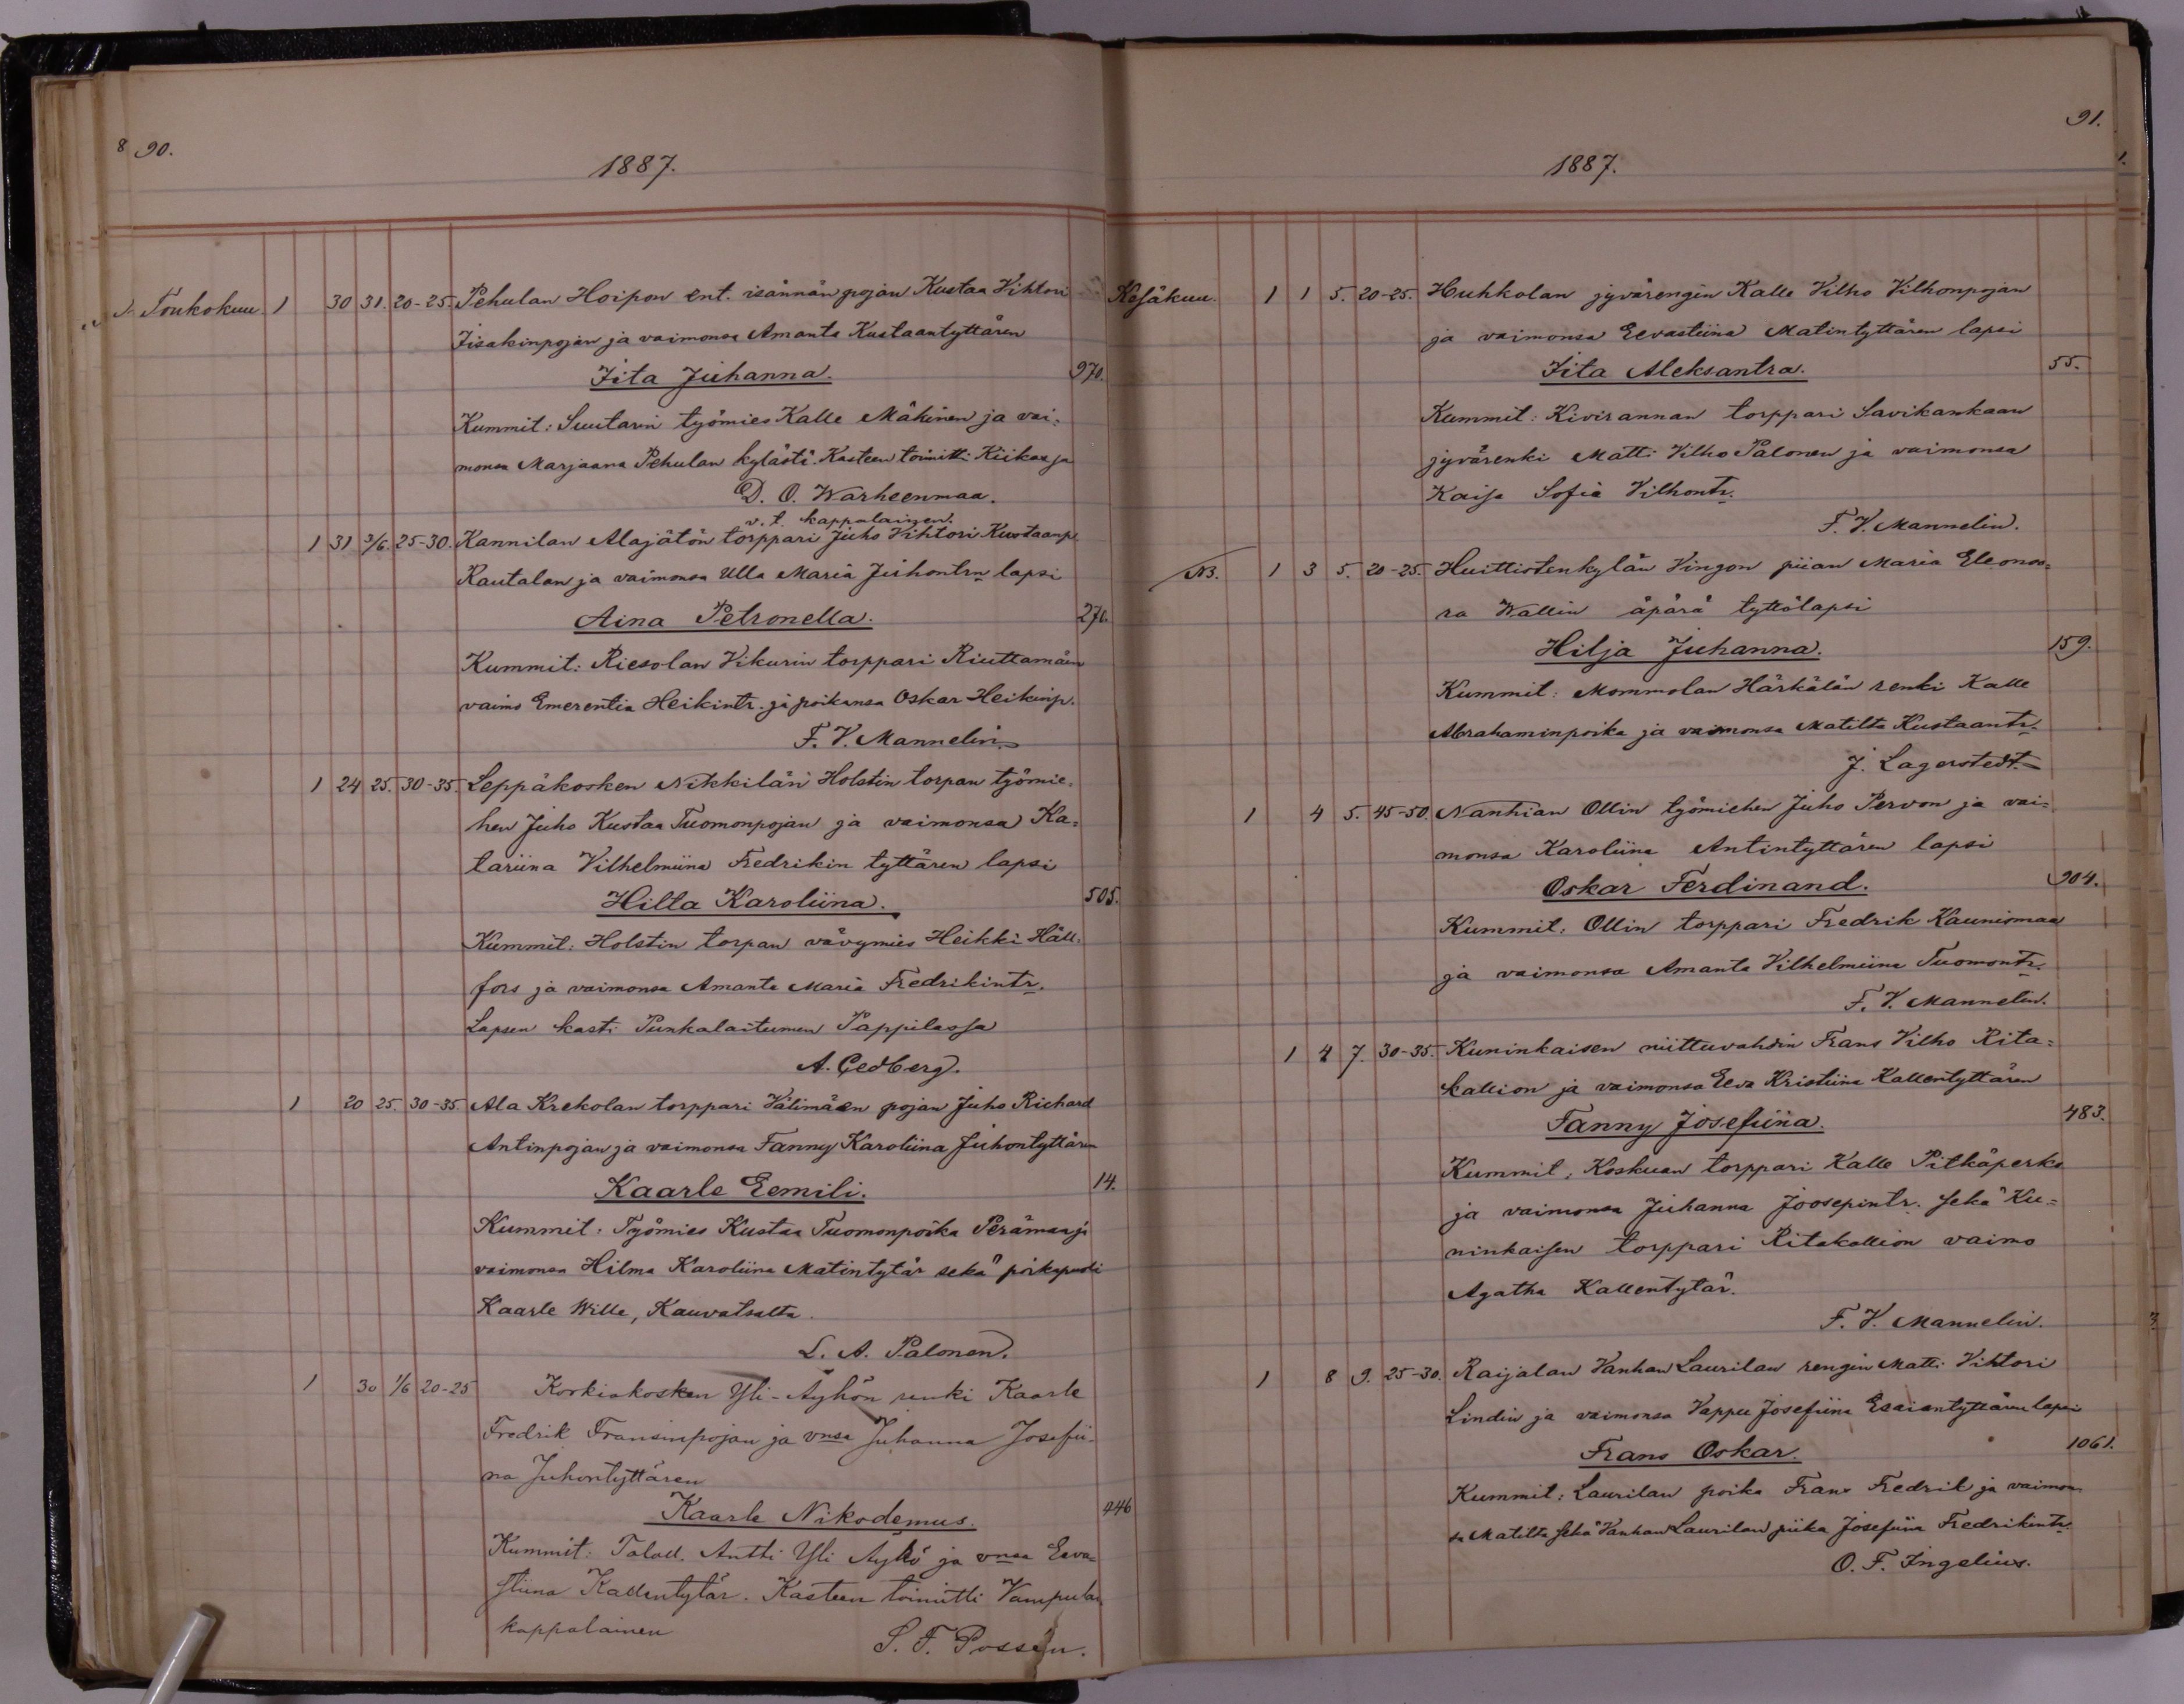 8 90.
1887.
Toukokuu. 1 30 31. 20-25. Pehulan Hoipon ent. isännän pojan Kustaa Vihtori
Iisakinpojan ja vaimonsa Amanta Kustaantyttären
Iita Juhanna. 970.
Kummit: Suutarin työmies Kalle Mäkinen ja vai=
monsa Marjaana Pehulan kylästä. Kasteen toimitti Kiikassa
D. O. Warheenmaa.
v. t. kappalainen.
1 31 3/6. 25-30. Kannilan Alajätön torppari Juho Vihtori Kustaanp.
Rautalan ja vaimonsa Ulla Maria Juhontrn lapsi
Aina Petronella. 270.
Kummit: Riesolan Vikurin torppari Riuttamäen
vaimo Emerentia Heikintr. ja poikansa Oskar Heikinp.
F. V. Mannelin.
1 24 25. 30-35. Leppäkosken Nikkilän Holstin torpan työmie=
hen Juho Kustaa Tuomonpojan ja vaimonsa Ka=
tariina Vilhelmiina Fredrikin tyttären lapsi
Hilta Karoliina. 505.
Kummit: Holstin torpan vävymies Heikki Häll=
fors ja vaimonsa Amanta Maria Fredrikintr.
Lapsen kasti Punkalaitumen Pappilassa
A. Cedberg.
1 20 25. 30-35. Ala Krekolan torppari Välimäen pojan Juho Richard
Antinpojan ja vaimonsa Fanny Karoliina Juhontyttären
Kaarle Eemili. 14.
Kummit: Työmies Kustaa Tuomonpoika Perämaa ja
vaimonsa Hilma Karoliina Matintytär sekä poikapuoli
Kaarle Wille, Kauvatsalta.
L. A. Palonen.
1 30 1/6 20-25 Korkiakosken Yli-Äyhön renki Kaarle
Fredrik Fransinpojan ja vnsa Juhanna Josefii-
na Juhontyttären
Kaarle Nikodemus. 446
Kummit: Taloll. Antti Yli Äyhö ja vnsa Eeva=
stiina Kallentytär. Kasteen toimitti Vampulan
kappalainen
S. F. Possén.
91.
1887.
Kesäkuu. 1 1 5. 20-25. Huhkolan jyvärengin Kalle Vilho Vilhonpojan
ja vaimonsa Eevastiina Matintyttären lapsi
Iita Aleksantra. 55.
Kummit: Kivirannan torppari Savikankaan
jyvärenki Matti Vilho Palonen ja vaimonsa
Kaisa Sofia Vilhontr.
F. V. Mannelin.
NB. 1 3 5. 20-25. Huittistenkylän Vingon piian Maria Eleono=
ra Wallin äpärä tyttölapsi
Hilja Juhanna. 159.
Kummit: Mommolan Härkälän renki Kalle
Abrahaminpoika ja vaimonsa Matilta Kustaantr.
J. Lagerstedt.
1 4 5. 45-50. Nanhian Ollin työmiehen Juho Pervon ja vai=
monsa Karoliina Antintyttären lapsi
Oskar Ferdinand. 904.
Kummit: Ollin torppari Fredrik Kauniomaa
ja vaimonsa Amanta Vilhelmiina Tuomontr.
F. V. Mannelin.
1 4 7. 30-35. Kuninkaisen niittuvahdin Frans Vilho Rita=
kallion ja vaimonsa Eeva Kristiina Kallentyttären
Fanny Josefiina. 483.
Kummit: Koskuan torppari Kalle Pitkäperko
ja vaimonsa Juhanna Joosepintr. sekä Ku=
ninkaisen torppari Ritakallion vaimo
Agatha Kallentytär.
F. V. Mannelin.
1 8 9. 25-30. Raijalan Vanhan Laurilan rengin Matti Vihtori
Lindin ja vaimonsa Vappu Josefiina Esaiantyttären lapsi
Frans Oskar. 1061.
Kummit: Laurilan poika Frans Fredrik ja vaimon=
sa Matilta sekä Vanhan Laurilan piika Josefiina Fredrikintr.
O. F. Ingelius.